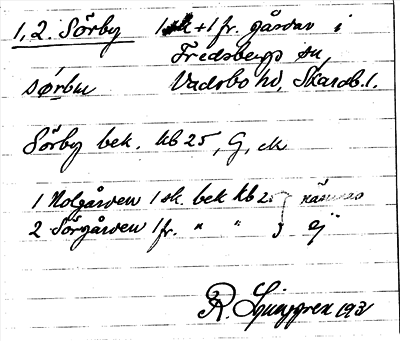 1, 2. Sörby 1 sk + 1 fr. gårdar i
Fredsbergs sn,
sørbu Vadsbo hd, Skarab. l.
Sörby bek. kb 25, G, ek
1 Nolgården 1 sk. bek kb 25 } nämnes
2 Sörgården 1 fr. " " } ej
R. Ljunggren 1931